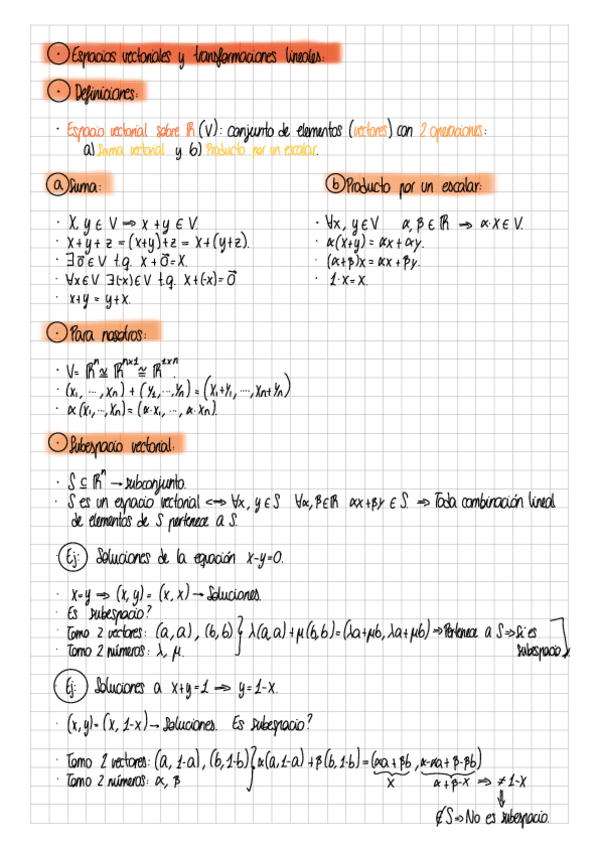 · Espacios vectoriales y transformaciones lineales:
· Definiciones:
· Espacio vectorial sobre ℝ (V): conjunto de elementos (vectores) con 2 operaciones:
a) Suma vectorial y b) Producto por un escalar.
a Suma:
· X, y ∈ V ⇒ x + y ∈ V.
· x + y + z = (x+y)+z = x + (y+z).
· ∃ 0⃗ ∈ V t.q. x + 0⃗ = x.
· ∀x ∈ V ∃(-x) ∈ V t.q. x+(-x) = 0⃗
· x+y = y+x.
b Producto por un escalar:
· ∀x, y ∈ V α, β ∈ ℝ ⇒ α·x ∈ V.
· α(x+y) = αx + αy.
· (α+β)x = αx + βy.
· 1·x = x.
· Para nosotros:
· V = ℝⁿ ≅ ℝⁿˣ¹ ≅ ℝ¹ˣⁿ.
· (x₁, ..., xₙ) + (y₁, ..., yₙ) = (x₁+y₁, ..., xₙ+yₙ)
· α(x₁, ..., xₙ) = (α·x₁, ..., α·xₙ).
· Subespacio vectorial:
· S ⊆ ℝⁿ → subconjunto.
· S es un espacio vectorial ⟺ ∀x, y ∈ S ∀α, β ∈ ℝ αx + βy ∈ S. ⇒ Toda combinación lineal
de elementos de S pertenece a S.
Ej: Soluciones de la equación x-y=0.
· x=y ⇒ (x, y) = (x, x) → Soluciones.
· Es subespacio?
· Tomo 2 vectores: (a, a), (b, b) } λ(a, a) + μ(b, b) = (λa+μb, λa+μb) ⇒ Pertenece a S ⇒ Si es
· Tomo 2 números: λ, μ. subespacio.
Ej: Soluciones a x+y=1 ⇒ y=1-x.
· (x, y) = (x, 1-x) → Soluciones. Es subespacio?
· Tomo 2 vectores: (a, 1-a), (b, 1-b) } α(a, 1-a) + β(b, 1-b) = (αa + βb, α-αa + β-βb)
· Tomo 2 números: α, β x α+β-x ⇒ ≠ 1-x
⇓
∉ S ⇒ No es subespacio.